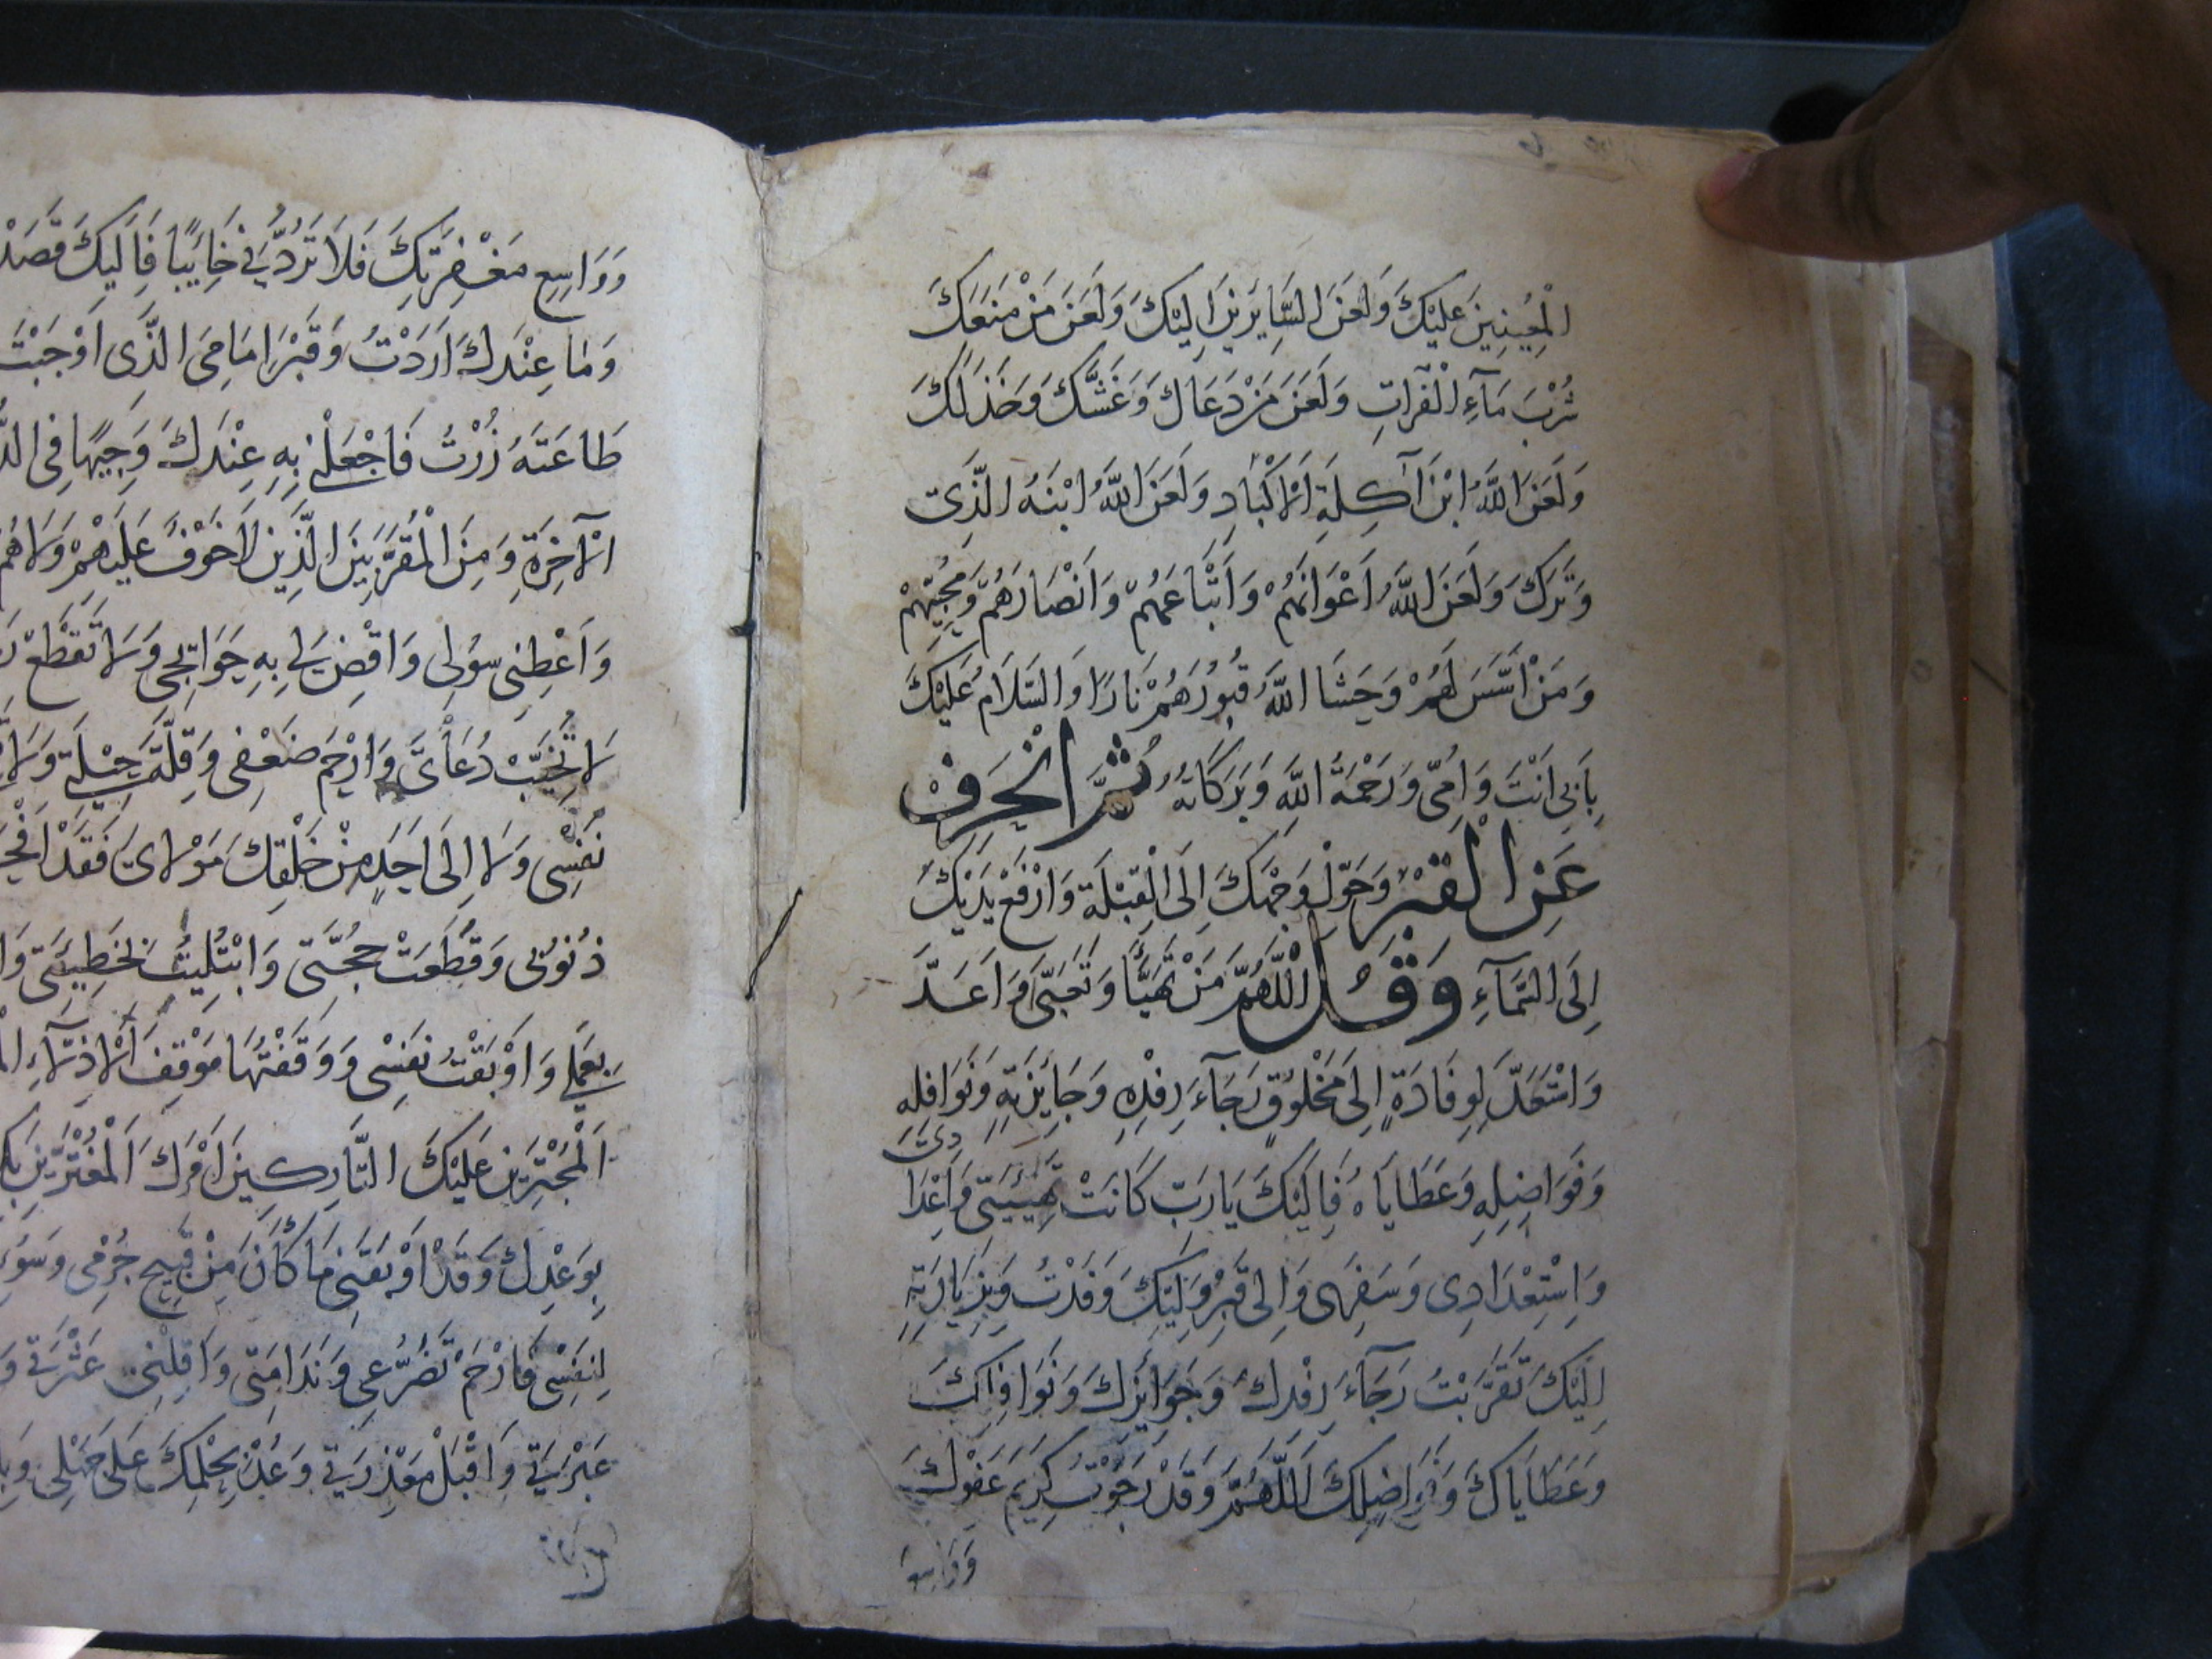 الْمُعِينِينَ عَلَيْكَ وَلَعَنَ السَّايِرِينَ اِلَيْكَ وَلَعَنَ مَنْ مَنَعَكَ
شُرْبَ مَآءِ الْفُرَاتِ وَلَعَنَ مَنْ دَعَاكَ وَغَشَّكَ وَخَذَلَكَ
وَلَعَنَ اللَّهُ ابْنَ آكِلَةِ الْاَكْبَادِ وَلَعَنَ اللَّهُ ابْنَهُ الَّذِى
وَتَرَكَ وَلَعَنَ اللَّهُ اَعْوَانَهُمْ وَاَتْبَاعَهُمْ وَاَنْصَارَهُمْ وَمُحِبِّيهِمْ
وَمَنْ اَسَّسَ لَهُمْ وَحَشَا اللَّهُ قُبُورَهُمْ نَارًا وَالسَّلَامُ عَلَيْكَ
بِاَبِى اَنْتَ وَاُمِّى وَرَحْمَةُ اللَّهِ وَبَرَكَاتُهُ ثُمَّ انْحَرِفْ
عَنِ الْقَبْرِ وَحَوِّلْ وَجْهَكَ اِلَى الْقِبْلَةِ وَارْفَعْ يَدَيْكَ
اِلَى السَّمَآءِ وَقُلْ اللَّهُمَّ مَنْ تَهَيَّأَ وَتَعَبَّى وَاَعَدَّ
وَاسْتَعَدَّ لِوِفَادَةٍ اِلَى مَخْلُوقٍ رَجَآءَ رِفْدِهِ وَجَايِزَتِهِ وَنَوَافِلِهِ
وَفَوَاضِلِهِ وَعَطَايَاهُ فَاِلَيْكَ يَارَبِّ كَانَتْ تَهْيِئَتِى وَاِعْدَا
دِى
وَاسْتِعْدَادِى وَسَفَرِى وَاِلى قَبْرِ وَلِيِّكَ وَفَدْتُ وَبِزِيَارَتِهِ
اِلَيْكَ تَقَرَّبْتُ رَجَآءَ رِفْدِكَ وَجَوَايِزِكَ وَنَوَافِلِكَ
وَعَطَايَاكَ وَفَوَاضِلِكَ اَللَّهُمَّ وَقَدْ رَجَوْتُ كَرِيمَ عَفْوِكَ
وَوَاسِع
وَوَاسِعِ مَغْفِرَتِكَ فَلَا تَرُدَّنِى خَايِبًا فَاِلَيْكَ قَصَدْ
وَمَا عِنْدَكَ اَرَدْتُ وَقَبْرَ اِمَامِىَ الَّذِى اَوْجَبْتَ
طَاعَتَهُ زُرْتُ فَاجْعَلْنِى بِهِ عِنْدَكَ وَجِيهًا فِى
الْآخِرَةِ وَمِنَ الْمُقَرَّبِينَ الَّذِينَ لَا خَوْفٌ عَلَيْهِمْ وَلَا هُمْ
وَاَعْطِنِى سُولِى وَاقْضِ لِى بِهِ حَوَائِجِى وَلَا تَقْطَعْ
لَا تُخَيِّبْ دُعَائِى وَارْحَمْ ضَعْفِى وَقِلَّةَ حِيلَتِى وَلَا
نَفْسِى وَلَا اِلَى اَحَدٍ مِنْ خَلْقِكَ مَوْلَاىَ فَقَدْ
ذُنُوبِى وَقُطِعَتْ حُجَّتِى وَابْتُلِيتُ بِخَطِيئَتِى
بِعَمَلِى وَاَوْبَقْتُ نَفْسِى وَوَقَفْتُهَا مَوْقِفَ الْاَذِلَّآءِ
اَلْمُجْتَرِينَ عَلَيْكَ التَّارِكِينَ اَمْرَكَ الْمُغْتَرِّينَ
بِوَعْدِكَ وَقَدْ اَوْبَقَنِى مَا كَانَ مِنْ قَبِيحِ جُرْمِى وَسُوءِ
لِنَفْسِى فَارْحَمْ تَضَرُّعِى وَنَدَامَتِى وَاَقِلْنِى عَثْرَتِى
عَبْرَتِى وَاقْبَلْ مَعْذِرَتِى وَعُدْ بِحِلْمِكَ عَلَى جَهْلِى